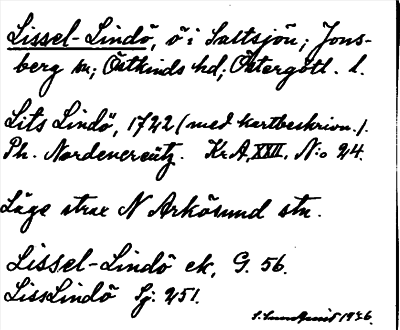 Lissel-Lindö, ö i Saltsjön; Jons-
berg sn; Östkinds hd; Östergötl. l.
Lits Lindö, 1722 (med kartbeskrivn.).
Ph. Nordencreütz. KrA XXII. N:o 24.
Läge strax N Arkösund stn.
Lissel-Lindö ek, G. 56.
LissLindö Sj: 251.
1936.